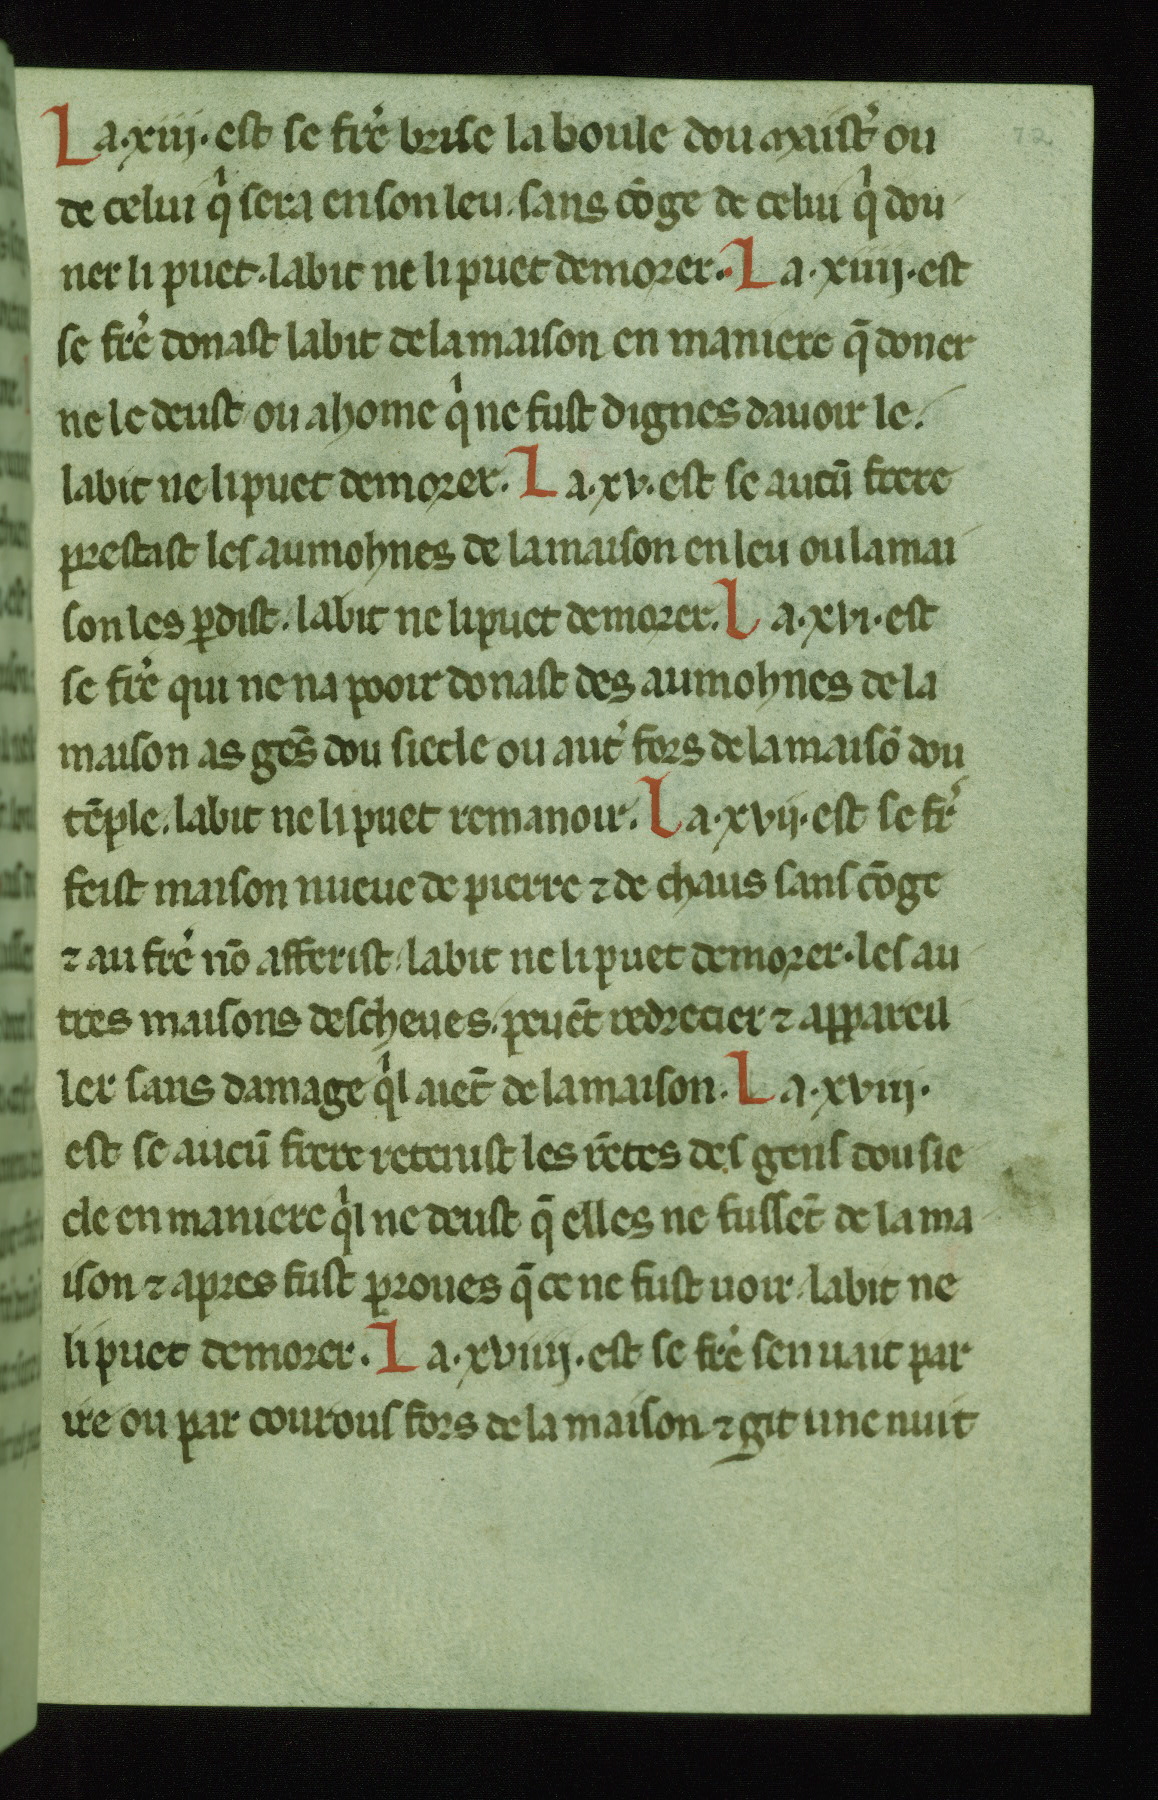 La·xiij· est se fre͛ brise la boule dou maist͛ ou
de celui qͥ sera en son leu. sans cōge de celui qͥ dou
ner li puet. labit ne li puet demorer. La·xiiij·est
se fre͛ donast labit de la maison en maniere q̄ doner
ne le deust ou a home qͥ ne fust dignes davoir le.
labit ne li puet demorer. La·xv·est se aucū frere
prestast les aumohnes de la maison en leu ou la mai
son les ꝑdist. labit ne li puet demorer. La·xvi·est
se fre͛ qui ne na pooir donast des aumohnes de la
maison as gēs dou siecle ou aut͛ fors de la maisō dou
tēple. labit ne li puet remanoir. La·xvij·est se fr͛
feist maison nueue de pierre ⁊ de chaus sans cōge
⁊ au fre͛ nō afferist. labit ne li puet demorer. les au
tres maisons descheues. peuēt redrecier ⁊ appareil
ler sans damage qͥl aiēt de la maison. La·xviij·
est se aucū frere retenist les rētes des gens dou sie
cle en maniere qͥl ne deust q̄ elles ne fussēt de la ma
ison ⁊ apres fust proues q̄ ce ne fust uoir. labit ne
li puet demorer. La·xviiij·est se fre͛ sen uait par
ire ou par courous fors de la maison ⁊ git une nuit
72